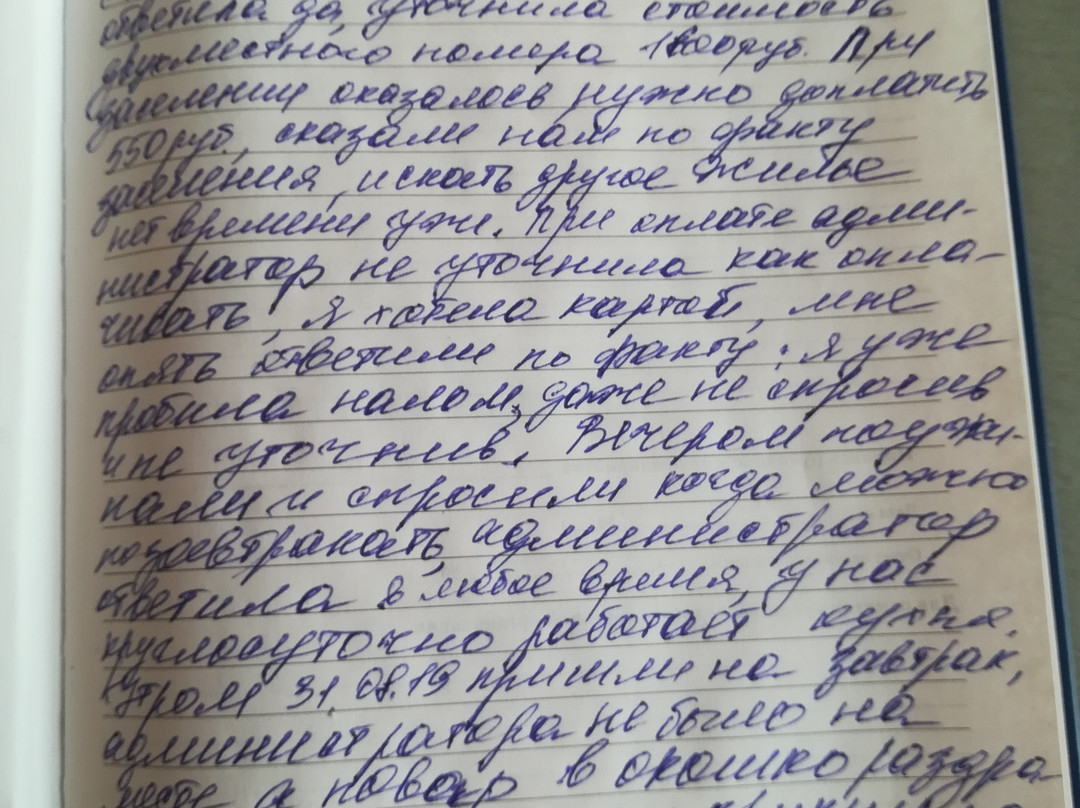 ответила да, уточнила стоимость
двухместного номера 1600руб. При
заселении оказалось нужно доплатить
550 руб., сказали нам по факту
заселения, искать другое жилье
нет времени уже. При оплате адми-
нистратор не уточнила как опла-
чивать, я хотела картой, мне
опять ответили по факту: я уже
пробила налом, даже не спросив
и не уточнив. Вечером поужи-
нали и спросили когда можно
позавтракать, администратор
ответила в любое время, у нас
круглосуточно работает кухня.
Утром 31.08.19 пришли на завтрак,
администратора не было на
месте а повар в окошко раздра